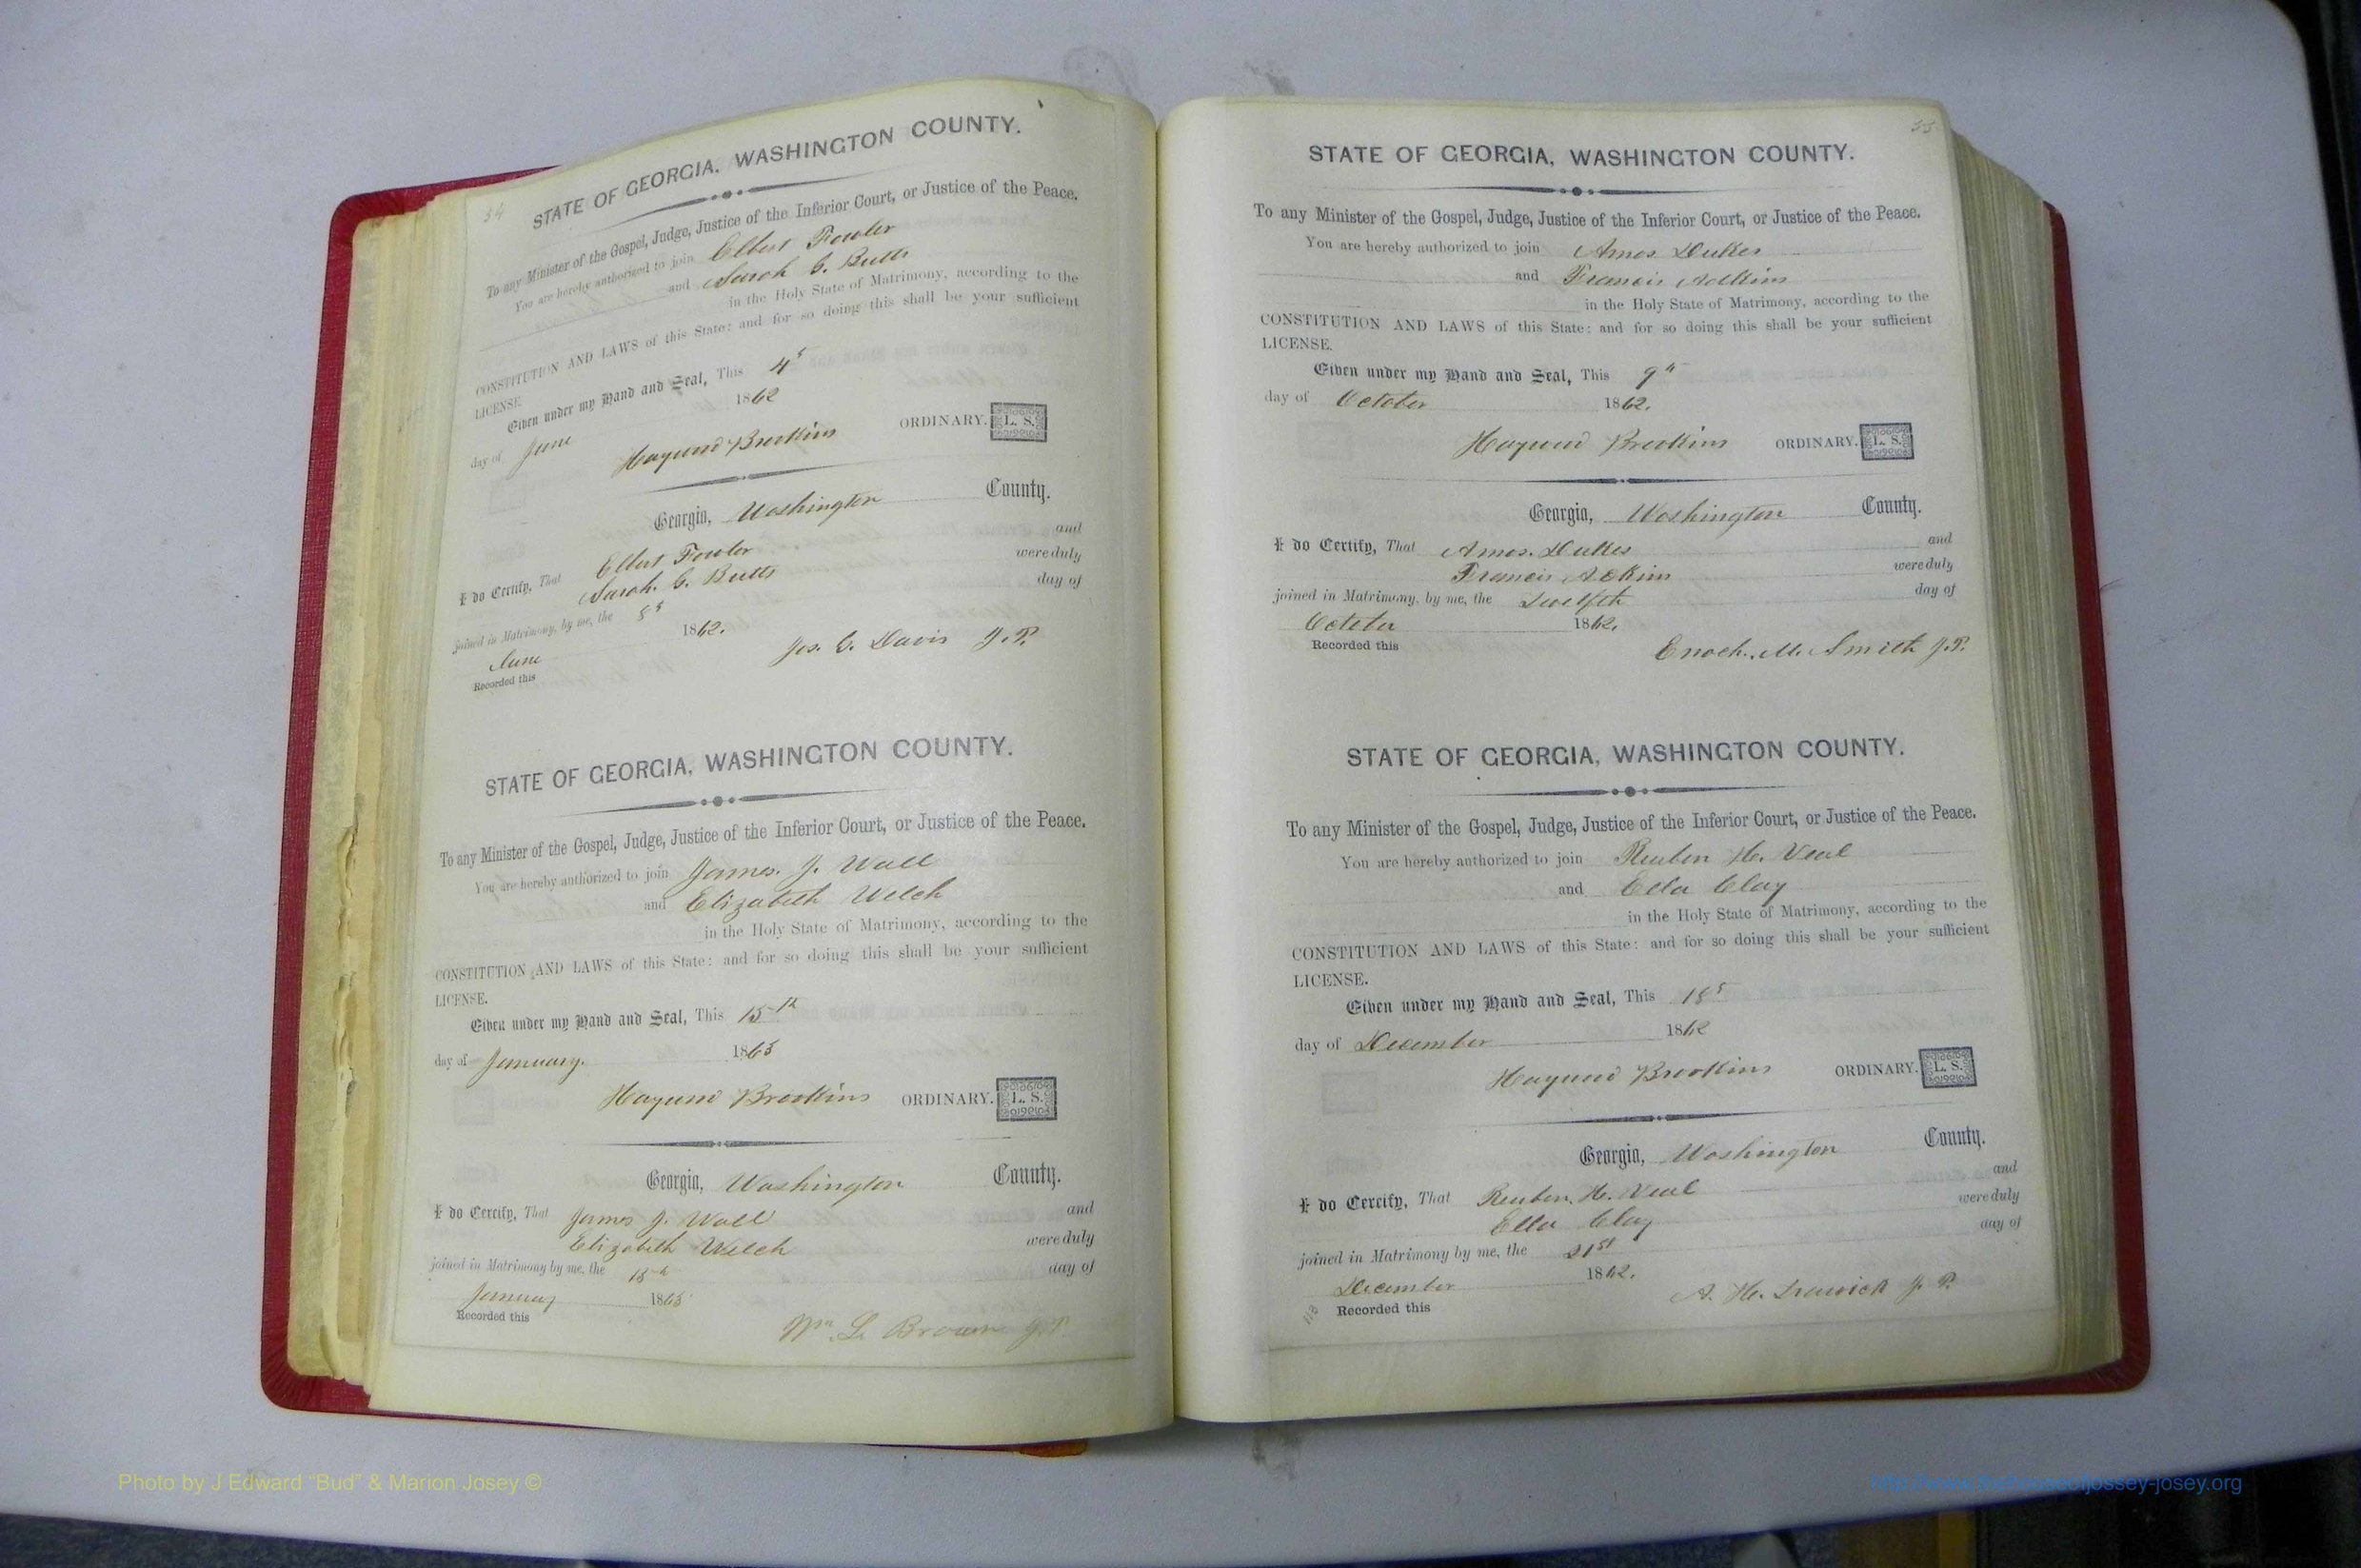 54
STATE OF GEORGIA, WASHINGTON COUNTY.
To any Minister of the Gospel, Judge, Justice of the Inferior Court, or Justice of the Peace.
You are hereby authorized to join Elbert Fowler
and Sarah C. Butts
in the Holy State of Matrimony, according to the
CONSTITUTION AND LAWS of this State: and for so doing this shall be your sufficient
LICENSE.
Given under my Hand and Seal, This 4th
day of June 1862
Haywood Brookins ORDINARY. L. S.
Georgia, Washington County.
I do Certify, That Elbert Fowler and
Sarah. C. Butts were duly
joined in Matrimony, by me, the 5th day of
June 1862.
Jos. C. Davis J. P.
Recorded this
STATE OF GEORGIA, WASHINGTON COUNTY.
To any Minister of the Gospel, Judge, Justice of the Inferior Court, or Justice of the Peace.
You are hereby authorized to join James. J. Wall
and Elizabeth Welch
in the Holy State of Matrimony, according to the
CONSTITUTION AND LAWS of this State: and for so doing this shall be your sufficient
LICENSE.
Given under my Hand and Seal, This 15th
day of January. 1863
Haywood Brookins ORDINARY. L. S.
Georgia, Washington County.
I do Certify, That James J. Wall and
Elizabeth Welch were duly
joined in Matrimony by me, the 15th day of
January 1863
Recorded this
Wm. L. Brown J.P.
55
STATE OF GEORGIA, WASHINGTON COUNTY.
To any Minister of the Gospel, Judge, Justice of the Inferior Court, or Justice of the Peace.
You are hereby authorized to join Amos Dukes
and Francis Adkins
in the Holy State of Matrimony, according to the
CONSTITUTION AND LAWS of this State: and for so doing this shall be your sufficient
LICENSE.
Given under my Hand and Seal, This 9th
day of October 1862.
Haywood Brookins ORDINARY. L. S.
Georgia, Washington County.
I do Certify, That Amos. Dukes and
Francis Adkins were duly
joined in Matrimony, by me, the Twelfth day of
October 1862.
Recorded this Enoch. M. Smith J.P.
STATE OF GEORGIA, WASHINGTON COUNTY.
To any Minister of the Gospel, Judge, Justice of the Inferior Court, or Justice of the Peace.
You are hereby authorized to join Reuben H. Veal
and Ella Clay
in the Holy State of Matrimony, according to the
CONSTITUTION AND LAWS of this State: and for so doing this shall be your sufficient
LICENSE.
Given under my Hand and Seal, This 18th
day of December 1862
Haywood Brookins ORDINARY. L. S.
Georgia, Washington County.
I do Certify, That Reuben. H. Veal and
Ella Clay were duly
joined in Matrimony by me, the 21st day of
December 1862.
Recorded this A. H. J. P.
Photo by J Edward “Bud” & Marion Josey ©